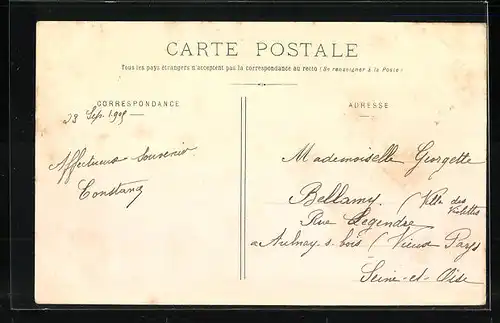 CARTE POSTALE
Tous les pays étrangers n'acceptent pas la correspondance au recto (Se renseigner à la Poste)
CORRESPONDANCE
23 Sep. 1905
Affectueux Souvenir
ADRESSE
Mademoiselle Georgette
Bellamy. (Villa des Violettes
Rue Legendre
a Aulnay s. bois (Vieux Pays
Seine-et-Oise